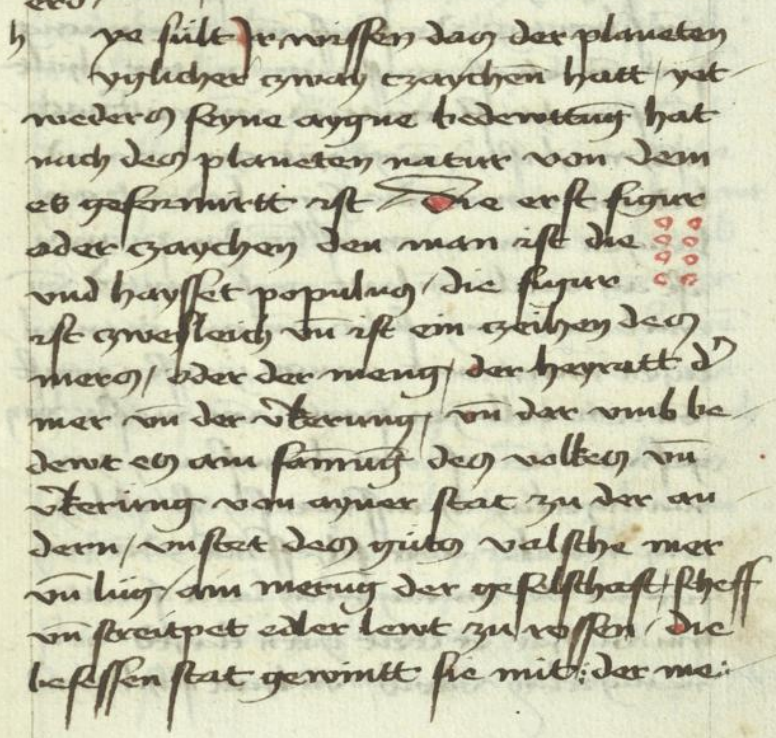 h ye sült Jr wissen das der planeten
yglicher zway tzaychen̄ hatt / yet
weders seyne aygne bedewttūg hat
nach des planeten natur von dem
es geformirtt ist / Die erst figur
oder czaychen den man ist die
vnd haysset populus / die figur
ist czwefleich vn̄ ist ein czeihen des
mers / oder der meng / der heyratt d'
mer vn̄ der v̄kerung / vn̄ dar vmb be
dewt es ain samnūg des volkes vn̄
v̄kerūng von ayner stat zu der an
dern / vnstet des güts valsche mer
vn̄ lüg / ain merug der geselschaft / scheff
vn̄ streitpet edler lewt zu rossen / die
besessen stat gewintt sie mit : der me :